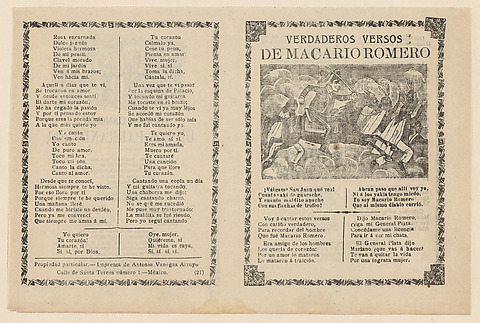 Rosa encarnada
Dulce
Violeta hermosa
De mi pensil.
Clavel morado
De mi jardín
Ven á mis brazos;
Ven hacia mí.
Aquel día que te ví,
Se trocaron en amor
Y desde entonces
El darte mi corazón.
Me ha cegado la pasión
Y por tí pensado estoy
Porque eres la prenda mía
A la que más quiero yo
Yo canto
Yo canto
De puro amor.
Toco mi
Toco
Canto la dicha,
Canto al amor.
Desde que te conocí,
Hermosa siempre te he visto.
Por eso lloro por tí
Porque siempre te he querido
Una mañana lloré
Cuando me hiciste un desdén,
Pero ya me convencí
Que siempre me amas á mí.
Yo quiero
Tu corazón;
Amarte, sí
Sí, sí, por Dios.
Tu corazón
Cálmalo ya,
Cese tu pena,
Piensa en amar
Vive, mujer,
Vive, sí, sí
Toma la dicha,
Gózala, sí.
Una vez que te ví pasar
Por la esquina de Palacio,
Y tocando mi guitarra
Me tocaste en el brazo;
Cuando te ví ya muy lejos
Se acordó mi corazón
Que habías de ser sólo mía
Y me fuí cantando yo.
Te quiero yo,
Te amo, sí, sí,
Eres mi amada,
Muero por tí.
Te cantaré
Una canción
Para que llore
Tu corazón.
Cantando una copla un día
Y mi guitarra tocando
Una chaborra me dijo:
Siga cantando charro.
No sé lo que me sucedió
Me puse muy tristemente:
La maldita se fué riendo,
Pero yo seguí cantando
Oye, mujer,
Quiéreme, sí
Mi vida es tuya,
Sí, sí, sí, sí.
Propiedad particular.—Imprenta de Antonio Vanegas Arroyo
Calle de Santa Teresa número 1—México. (21)
VERDADEROS VERSOS
DE MACARIO ROMERO
¡Válgame San Juan qué veo!
Cuánto vale lo guareche,
Y cuánto maldito apache
Con sus flechas de trofeo!
Abran paso que allí voy yo,
Ni á los yakis tengo miedo
Yo soy Macario Romero
Que al mismo diablo corrió.
Voy á cantar estos versos
Con cariño verdadero,
Para recordar del nombre
Que fué Macario Romero.
Era amigo de los hombres
Los quería de corazón:
Por un amor lo mataron
Lo mataron á traición.
Dijo Macario Romero,
oiga, mi General Plata,
Concédame una licencia
Para ir á ver mi chata.
El General Plata dijo
Mariano ¿que vas á hacer?
Te van á quitar la vida
Por una ingrata mujer.